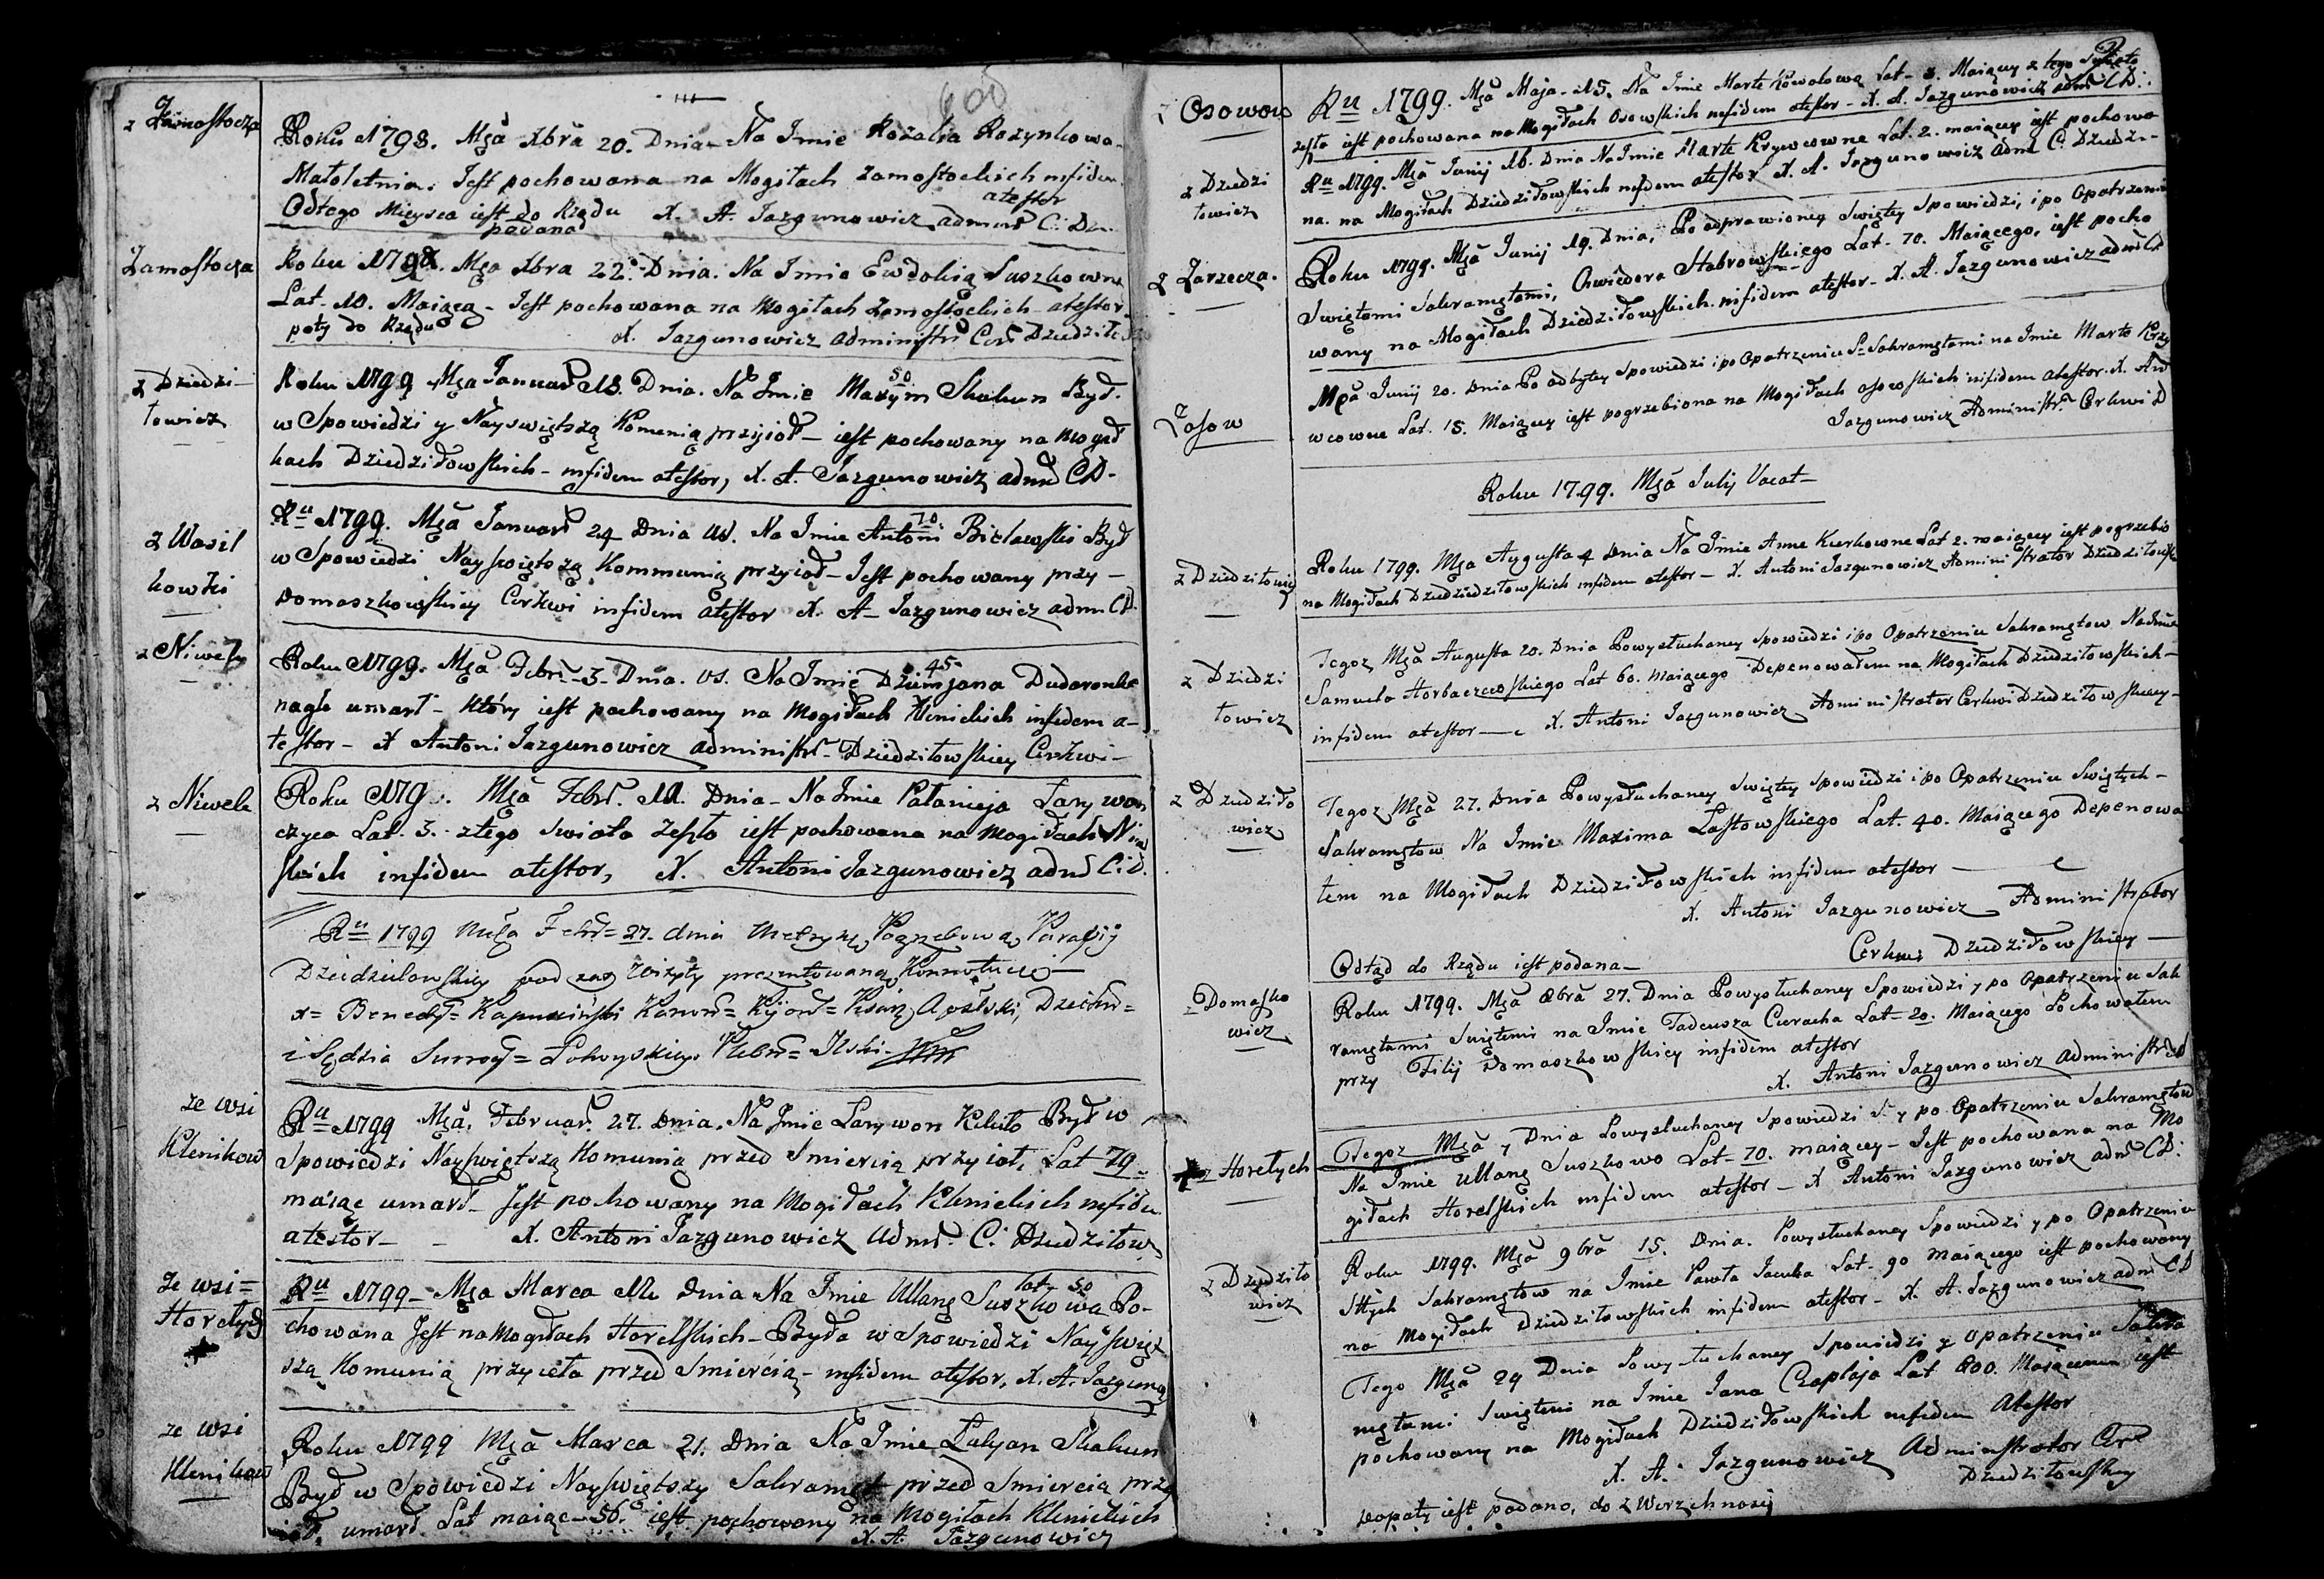 z Zamostocza
Roku 1798. Mca Xbra 20. Dnia Na Jmie Rozalia Rozynkowa
Małoletnia. Jest pochowana na Mogiłach Zamostockich infidem
atestor
Odtego Mieysca iest do Rządu podana X. A. Jazgunowicz
Zamostocza
Roku 1798. Mca Xbra 22. Dnia. Na Jmie Ewdokią Suszkowna
Lat. 10. Maiąca Jest pochowana na Mogiłach Zamostockich atestor
poty do Rządu X. Jazgunowicz
z Dziedzi-
łowicz
Roku 1799 Mca Januar 18. Dnia. Na Jmie Maxym 50 Skakun Był
w Spowiedzi y Nayswiętszą Komunią przyioł - iest pochowany na Mogił
kach Dziedziłowskich - infidem atestor, X. A. Jazgunowicz adm CD.
z Wasil
kowki
Ru 1799. Mca Januar 24 Dnia vs. Na Jmie Antoni 70. Bielawski Był
w Spowiedzi Nayswiętszą Kommunią przyioł - Jest pochowany przy -
Domaszkowskiey Cerkwi infidem atestor X. A. Jazgunowicz adm CD.
z Niwek
Roku 1799. Mca Febr. 3. Dnia. vs. Na Jmie Dziemjana 45
nagle umarł - który iest pochowany na Mogiłach Klenickich infidem a-
testor - X Antoni Jazgunowicz administr - Dziedziłowskiey Cerkwi -
z Niwek
Roku 179 . Mca Febr. Dnia - Na Jmie Pałanieja Łarywon
czyca Lat. 3. ztego swiata zeszła iest pochowana na Mogiłach
skich infidem atestor, X. Antoni Jazgunowicz adm C.D.
Ru 1799 Mca Febr = 27. dnia Metrykę Pogrzebową Parafij
Dziedziłowskiey pod czas Wizyty prezentowaną
x = Bened = Kanon = Kijow =
i Sędzia Surrog =
ze wsi
Klenikow
Ru 1799 Mca. Februar. 27. Dnia. Na Jmie Łarywon Był w
Spowiedzi Nayswiętszą Komunią przed Smiercią przyioł, Lat 70
maiąc umarł - Jest pochowany na Mogiłach Klenickich infidem
atestor - X. Antoni Jazgunowicz Adm. C. Dziedziłow
ze wsi =
Horełych
Ru 1799 - Mca Marca Dnia Na Jmie Ullanę Suszkowa lat 50 Po-
chowana Jest na Mogiłach Horelskich - Była w Spowiedzi Nayswięt
szą Komunią przyieła przed Smiercią - infidem atestor, X. A. Jazguno
ze wsi
Klenikow
Roku 1799 Mca Marca 21. Dnia Na Jmie Łukjan Skakun
Był w Spowiedzi Nayswiętszy Sakrament przed Smiercią przy
ioł, umarł Lat maiąc - 50. iest pochowany na Mogiłach Klenickich
X. A. Jazgunowicz
z Osowow
Ru 1799. Mca Maja - 15. Na Jmie Marta Kowalowa Lat - 3. Maiąca z tego Swiata
zeszła iest pochowana na Mogiłach Osowskich infidem atestor - X. A. Jazgunowicz adm CD.
z Dziedzi
łowicz
Ru 1799. Mca Junij 16. Dnia Na Jmie Marta Krywcowne Lat. 2. maiącey iest pochowa
na. na Mogiłach Dziedziłowskich infidem atestor X. A. Jazgunowicz adm C. Dziedz. -
z Zarzecza.
Roku 1799. Mca Junij 19. Dnia, Po odprawioney Swiętey Spowiedzi, i po Opatrzeniu
Swiętami Sakramętami, Chwiedora Stabrowskiego Lat. 70. Maiącego, iest pocho
wany na Mogiłach Dziedziłowskich. infidem atestor - X. A. Jazgunowicz adm CD
Zosow
Mca Junij 20. Dnia Po odbytey Spowiedzi i po Opatrzeniu S. Sakramętami na Jmie Marta Krzy
wcowne Lat. 15. Maiącey iest pogrzebiona na Mogiłach osowskich infidem atestor. X. An
Jazgunowicz Administr. Cerkwi D
Roku 1799. Mca Julij Vacat -
z Dziedziłowicz
Roku 1799. Mca Augusta 4 Dnia Na Jmie Anne Kurkowne Lat 2. maiącey iest pogrzebio
na Mogiłach Dziedziłowskich infidem atestor - X. Antoni Jazgunowicz Administrator
z Dziedzi
łowicz
Tegoz Mca Augusta 20. Dnia Powysłuchaney Spowiedzi i po Opatrzeniu Sakramętow Na Jmie
Samuela Horbaczewskiego Lat 60. maiącego Depenowałem na Mogiłach Dziedziłowskich -
infidem atestor - X. Antoni Jazgunowicz Administrator Cerkwi Dziedziłowskiey -
z Dziedziło
wicz
Tegoz Mca 27. Dnia Powysłuchaney Swiętey Spowiedzi i po Opatrzeniu Swiętych -
Sakramętow Na Jmie Maxima Łastowskiego Lat. 40. Maiącego Depenowa
łem na Mogiłach Dziedziłowskich infidem atestor -
X. Antoni Jazgunowicz Administrator
Cerkwi Dziedziłowskiey -
Odtąd do Rządu iest podana -
z Domaszko
wicz
Roku 1799. Mca 8bra 27. Dnia Powysłuchaney Spowiedzi y po Opatrzeniu Sak
ramętami Swiętemi na Jmie Tadeusza Cieracha Lat = 20. Maiącego Pochowałem
przy Filij Domaszkowskiey infidem atestor
X. Antoni Jazgunowicz
z Horełych
Tegoz Mca y Dnia Powysłuchaney Spowiedzi S. y po Opatrzeniu Sakramętow
Na Jmie Ullanę Suszkowo Lat - 70. maiącey - Jest pochowana na Mo
giłach Horelskich infidem atestor - X Antoni Jazgunowicz adm CD.
z Dziedziło
wicz
Roku 1799. Mca 9bra 15. Dnia. Powysłuchaney Spowiedzi y po Opatrzeniu
Sakramętow na Jmie Pawła Lat - 90 maiącego iest pochowany
na Mogiłach Dziedziłowskich infidem atestor - X. A. Jazgunowicz adm CD
Tego Mca 29 Dnia Powysłuchaney Spowiedzi y Opatrzeniu Sakra
mętami Swiętemi na Jmie Jana Czaplaja Lat iest
pochowany na Mogiłach Dziedziłowskich infidem Atestor
X. A. Jazgunowicz Administrator Cer
Dziedziłowskiey
Dopoty iest podano, do Zwierzchnosci